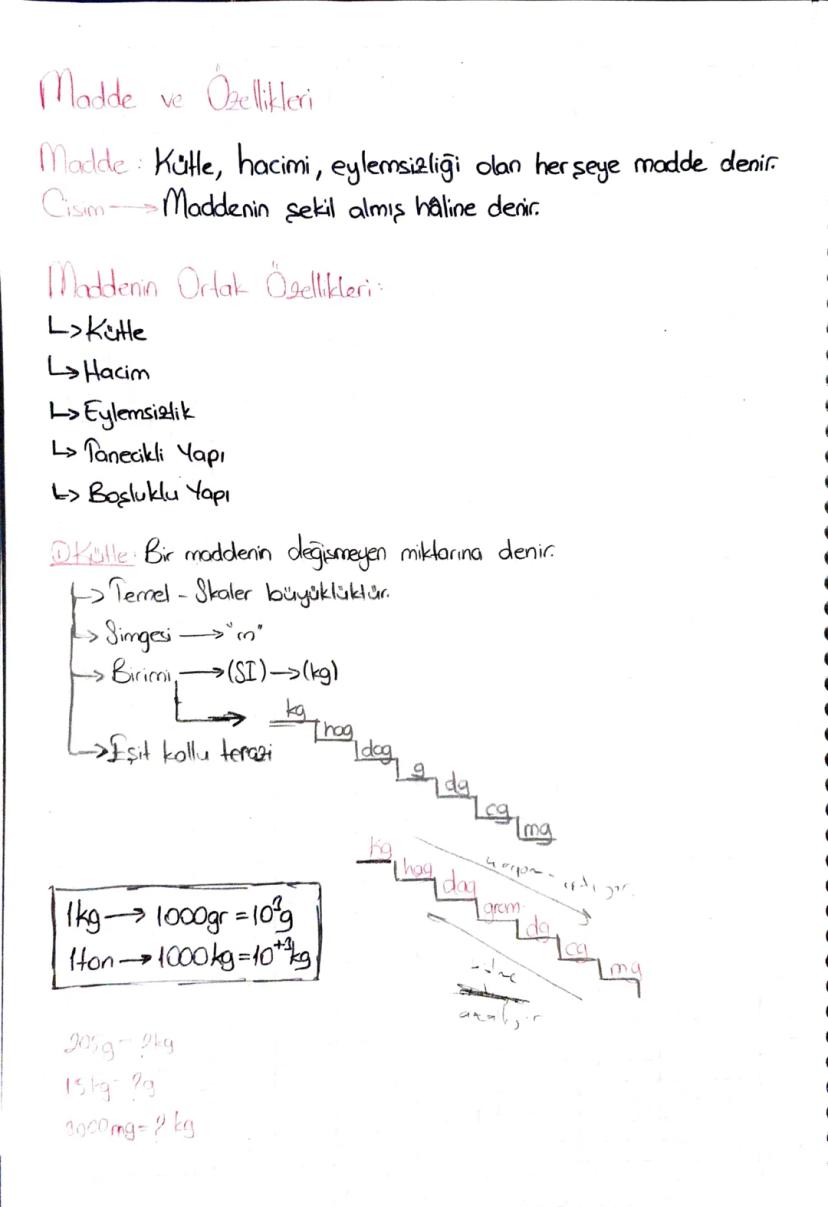 Madde ve Özellikleri
Madde: Kütle, hacimi, eylemsizliği olan herşeye madde denir.
Cisim → Maddenin şekil almış hâline denir.
Maddenin Ortak Özellikleri:
↳ Kütle
↳ Hacim
↳ Eylemsizlik
↳ Tanecikli Yapı
↳ Boşluklu Yapı
① Kütle: Bir maddenin değişmeyen miktarına denir.
→ Temel - Skaler büyüklüktür.
→ Simgesi → "m"
→ Birimi → (SI) → (kg)
kg
hag
→ Eşit kollu terazi
dag
g
dg
cg
mg
kg
hag
dag
gram
dg
cg
mg
azalıyor
1kg → 1000gr = 10³g
1ton → 1000kg = 10⁺³kg
205g = ?kg
15kg = ?g
3000mg = ? kg